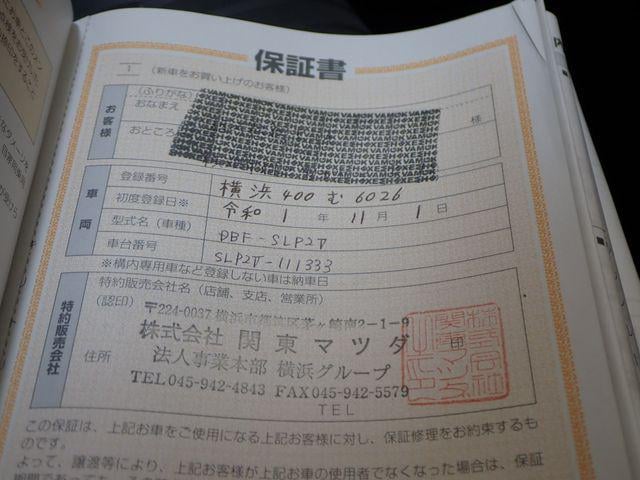 保証書
1
(新車をお買い上げのお客様)
お客様
(ふりがな)
おなまえ
様
おところ
車両
登録番号 横浜 400 む 6026
初度登録日※ 令和 1 年 11 月 1 日
型式名(車種) DBF-SLP2T
車台番号 SLP2T-111333
※構内専用車など登録しない車は納車日
特約販売会社
特約販売会社名(店舗、支店、営業所)
(認印)
〒224-0037 横浜市都筑区茅ヶ崎南2-1-9
株式会社 関東マツダ
印
法人事業本部 横浜グループ
住所
TEL045-942-4843 FAX045-942-5579
TEL
この保証は、上記お車をご使用になる上記お客様に対し、保証修理をお約束するも
のです。
よって、譲渡等により、上記お客様が上記お車の使用者でなくなった場合は、保証